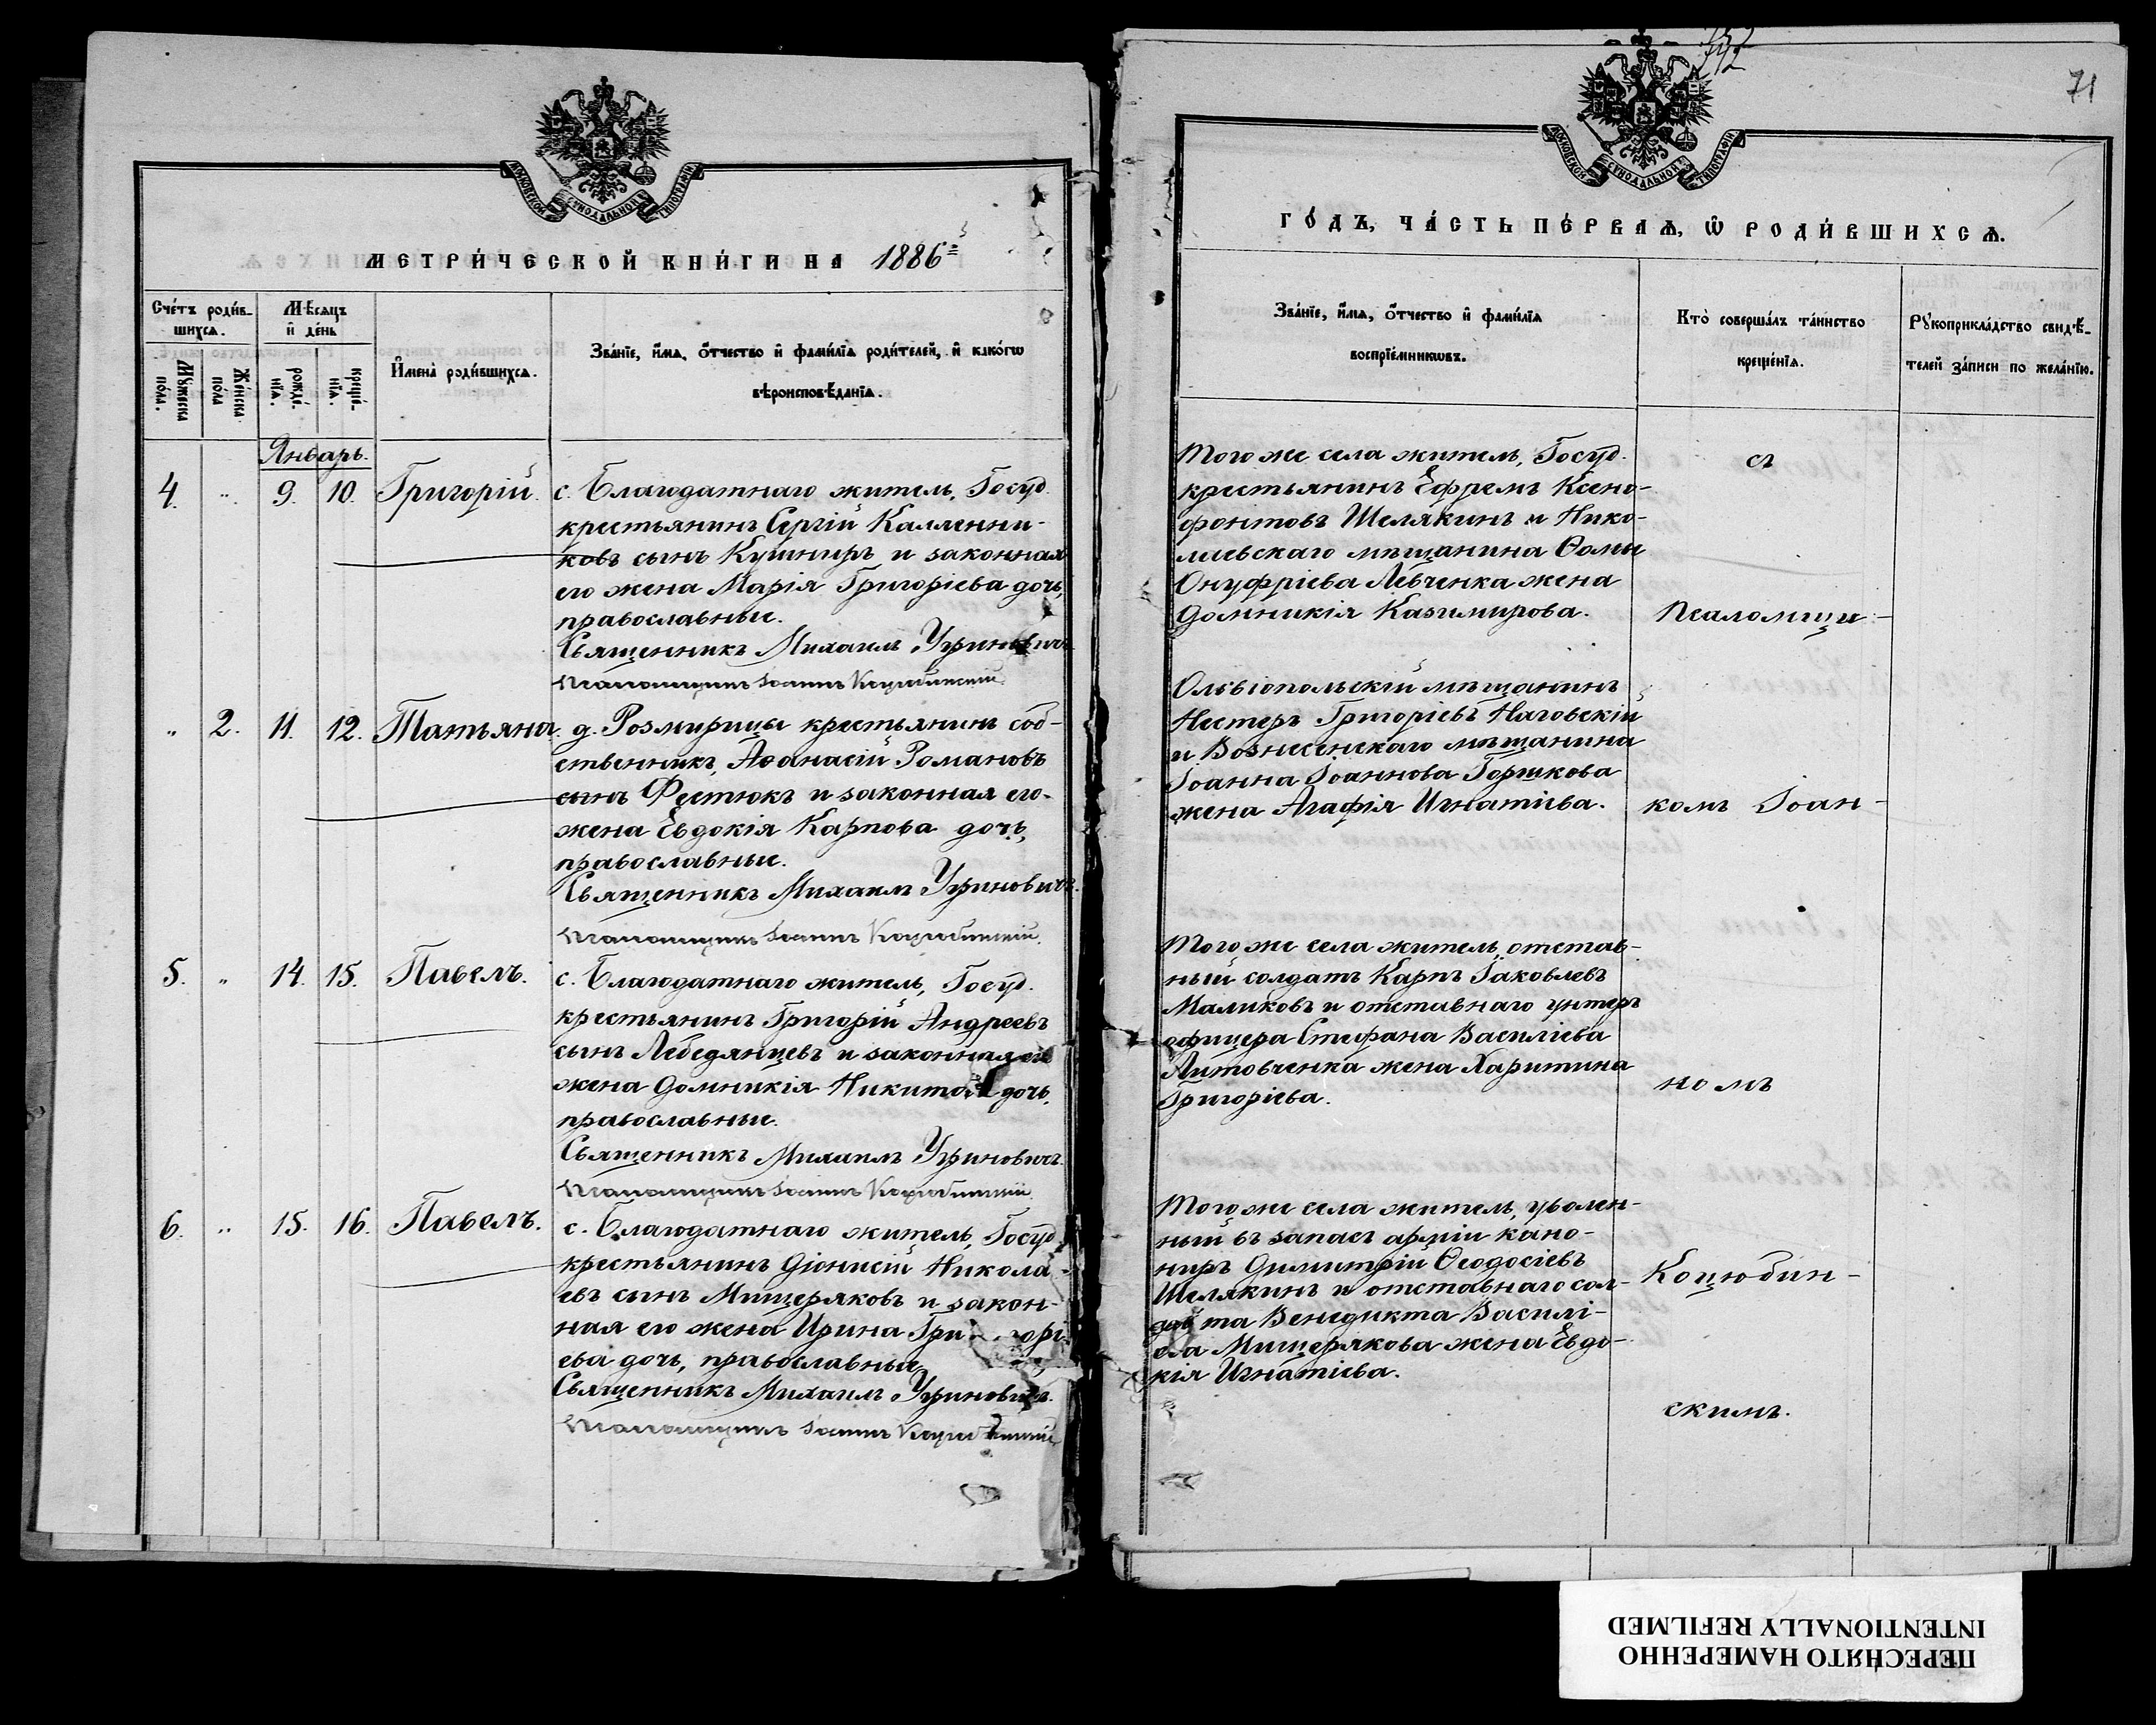 МОСКОВСКОЙ СѴНОДАЛЬНОЙ ТИПОГРАФІИ
МЕТРИ́ЧЕСКОЙ КНИ́ГИ НА 1886й
Сче́тъ роди́в-
шихсѧ.
Мѣ́сѧцъ
и҆ де́нь
Мꙋ́жеска
по́ла.
Же́нска
по́ла
рожде́-
нїѧ.
креще́-
нїѧ.
И҆мена̀ роди́вшихсѧ.
Зва́нїе, и҆́мѧ, ѻ҆́тчество и҆ фамі́лїѧ роди́телей, и҆ како́гѡ
вѣроисповѣ́данїѧ.
Январь.
4. " 9. 10. Григорій.
с. Благодатнаго житель, Госуд.
крестьянинъ Сергій Каллинни-
ковъ сынъ Кушниръ и законная
его жена Марія Григоріева дочь,
православные.
Священникъ Михаилъ Угриновичъ
Псаломщикъ Іоаннъ Коцюбинскій.
" 2. 11. 12. Татьяна.
д. Розмирицы крестьянинъ соб-
ственникъ, Аѳанасій Романовъ
сынъ Фестюкъ и законная его
жена Евдокія Карпова дочь,
православные.
Священникъ Михаилъ Угриновичъ.
Псаломщикъ Іоаннъ Коцюбинскій.
5. " 14. 15. Павелъ.
с. Благодатнаго житель, Госуд.
крестьянинъ Григорій Андреевъ
сынъ Лебедянцевъ и законная его
жена Домникія Никитова дочь,
православные.
Священникъ Михаилъ Угриновичъ.
Псаломщикъ Іоаннъ Коцюбинскій.
6. " 15. 16. Павелъ.
с. Благодатнаго житель, Госуд.
крестьянинъ Діонисій Никола-
евъ сынъ Мищеряковъ и закон-
ная его жена Ирина Григорі-
ева дочь, православные
Священникъ Михаилъ Угриновичъ.
Псаломщикъ Іоаннъ Коцюбинскій.
71
МОСКОВСКОЙ СѴНОДАЛЬНОЙ ТИПОГРАФІИ
ГО́ДЪ, ЧА́СТЬ ПЕ́РВАѦ, Ѡ҆ РОДИ́ВШИХСѦ.
Зва́нїе, и҆́мѧ, ѻ҆́тчество и҆ фамі́лїѧ
воспрїе́мникѡвъ.
Кто̀ соверша́лъ та́инство
креще́нїѧ.
Рꙋкоприкла́дство свидѣ́-
телей за́писи по жела́нїю.
Того же села житель, Госуд.
крестьянинъ Ефремъ Ксено-
фонтовъ Шелякинъ и Нико-
лаевскаго мѣщанина Ѳомы
Онуфріева Левченка жена
Домникія Казимирова.
Ольвіопольскій мѣщанинъ
Нестеръ Григоріевъ Наговскій
и Вознесенскаго мѣщанина
Іоанна Іоаннова Горшкова
жена Агафія Игнатіева.
Того же села житель, отстав-
ный солдатъ Карпъ Іаковлевъ
Маликовъ и отставнаго унтеръ
офицера Стефана Василіева
Литовченка жена Харитина
Григоріева.
Того же села житель, уволен-
ный въ запасъ арміи кано-
ниръ Димитрій Ѳеодосіевъ
Шелякинъ и отставнаго сол-
дата Венедикта Василі-
ева Мищерякова жена Евдо-
кія Игнатіева.
съ
Псаломщи-
комъ Іоан-
номъ
Коцюбин-
скимъ.
ПЕРЕСНЯТО НАМЕРЕННО
INTENTIONALLY REFILMED